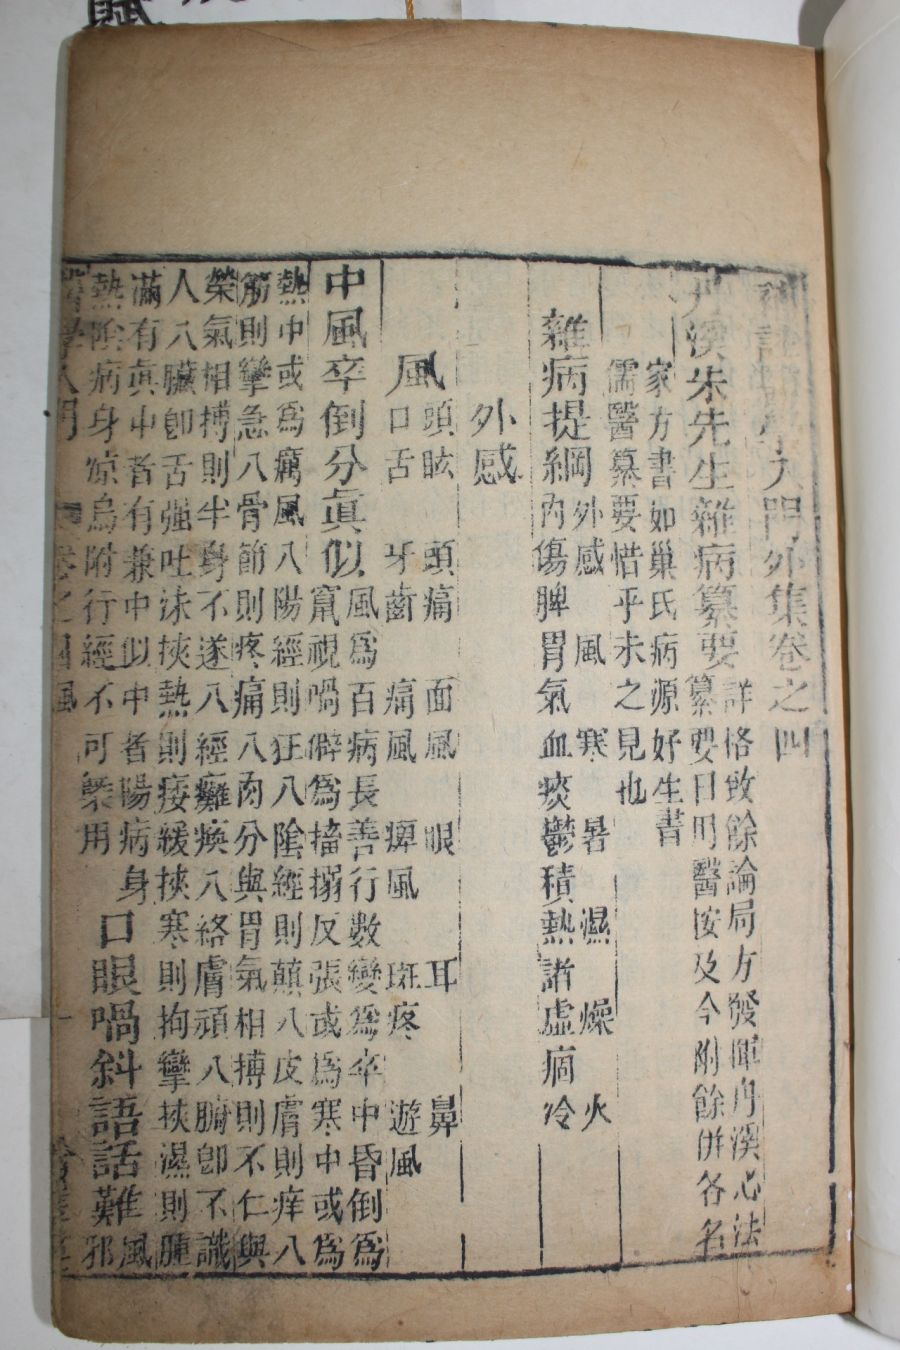 門外集卷之四
丹溪朱先生雜病纂要
詳格致餘論局方發揮丹溪心法
纂要日用醫按及今附餘併各名
家方書如巢氏病源好生書
儒醫纂要惜乎未之見也
雜病提綱
外感 風 寒 暑 濕 燥 火
內傷脾胃氣血痰鬱積熱諸虛痼冷
外感
風
頭眩 頭痛 面風 眼 耳 鼻
口舌 牙齒 痛風 痺風 斑疹 遊風
中風卒倒分眞似
風爲百病長善行數變爲卒中昏倒爲
竄視喎僻爲搐搦反張或爲寒中或爲
熱中或爲癘風入陽經則狂入陰經則顛入皮膚則痒入
筋則攣急入骨節則疼痛入肉分與胃氣相搏則不仁與
榮氣相搏則半身不遂入經癱瘓入絡膚頑入腑卽不識
人入臟卽舌强吐沫挾熱則痿緩挾寒則拘攣挾濕則腫
滿有眞中者有兼中似中者陽病身
熱陰病身凉烏附行經不可槩用
口眼喎斜語話難
風
邪
醫學入門 卷之四風 一